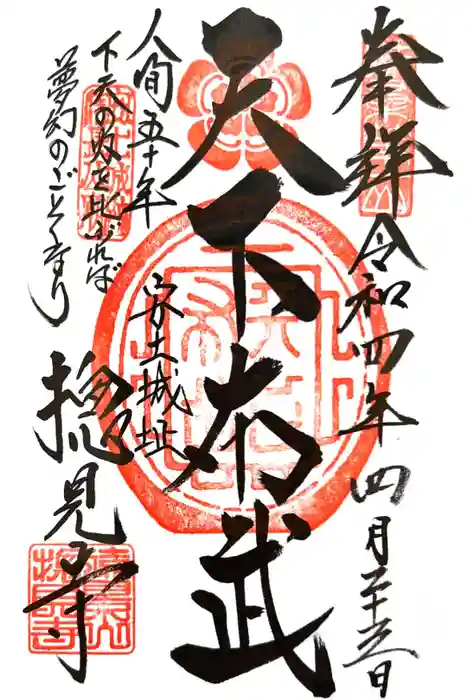 奉拝 令和四年四月二十三日
天下布武
安土城址
人間五十年
下天の内を比ぶれば
夢幻のごとくなり
摠見寺